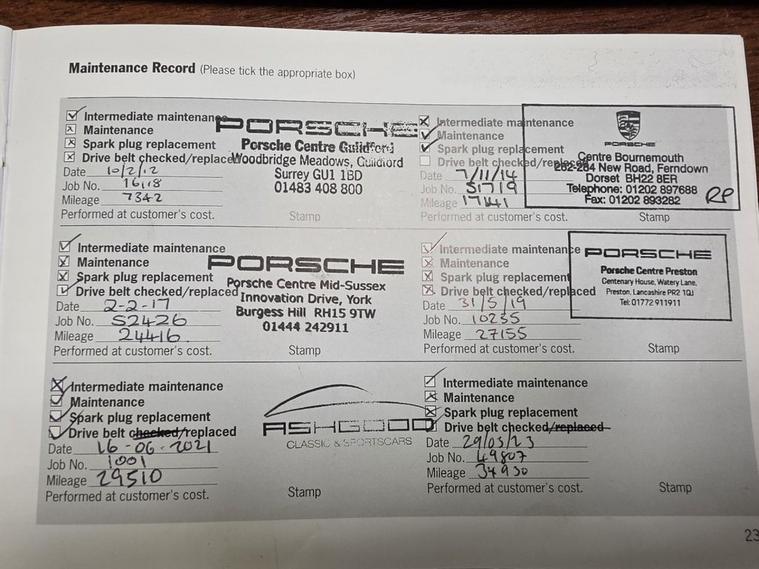 Maintenance Record (Please tick the appropriate box)
Intermediate maintenance
Maintenance
Spark plug replacement
Drive belt checked/replaced
Date 10/2/12
Job No. 16118
Mileage 7342
Performed at customer's cost.
PORSCHE
Porsche Centre Guildford
Woodbridge Meadows, Guildford
Surrey GU1 1BD
01483 408 800
Stamp
Intermediate maintenance
Maintenance
Spark plug replacement
Drive belt checked/replaced
Date 7/11/14
Job No. 51719
Mileage 17141
Performed at customer's cost.
PORSCHE
Centre Bournemouth
262-284 New Road, Ferndown
Dorset BH22 8ER
Telephone: 01202 897688
Fax: 01202 893282
RP
Stamp
Intermediate maintenance
Maintenance
Spark plug replacement
Drive belt checked/replaced
Date 2-2-17
Job No. S2426
Mileage 24416
Performed at customer's cost.
PORSCHE
Porsche Centre Mid-Sussex
Innovation Drive, York
Burgess Hill RH15 9TW
01444 242911
Stamp
Intermediate maintenance
Maintenance
Spark plug replacement
Drive belt checked/replaced
Date 31/5/19
Job No. 10255
Mileage 27155
Performed at customer's cost.
PORSCHE
Porsche Centre Preston
Centenary House, Watery Lane,
Preston, Lancashire PR2 1QJ
Tel: 01772 911911
Stamp
Intermediate maintenance
Maintenance
Spark plug replacement
Drive belt checked/replaced
Date 16-06-2021
Job No. 1001
Mileage 29510
Performed at customer's cost.
ASHGOOD
CLASSIC & SPORTSCARS
Stamp
Intermediate maintenance
Maintenance
Spark plug replacement
Drive belt checked/replaced
Date 29/03/23
Job No. 49807
Mileage 34930
Performed at customer's cost.
Stamp
23